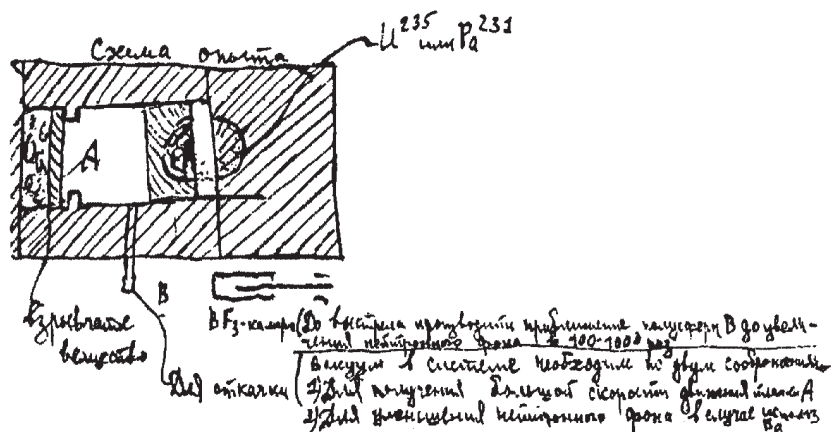 Схема опыта
U²³⁵ или Pa²³¹
A
B
Взрывчатое
вещество
BF₃-камера (До выстрела производить приближение полусферы B до увели-
чения нейтронного фона в 100-1000 раз
Для откачки
Вакуум в системе необходим по двум соображениям
1) Для получения большой скорости движения A
2) Для уменьшения нейтронного фона в случае использ
Pa